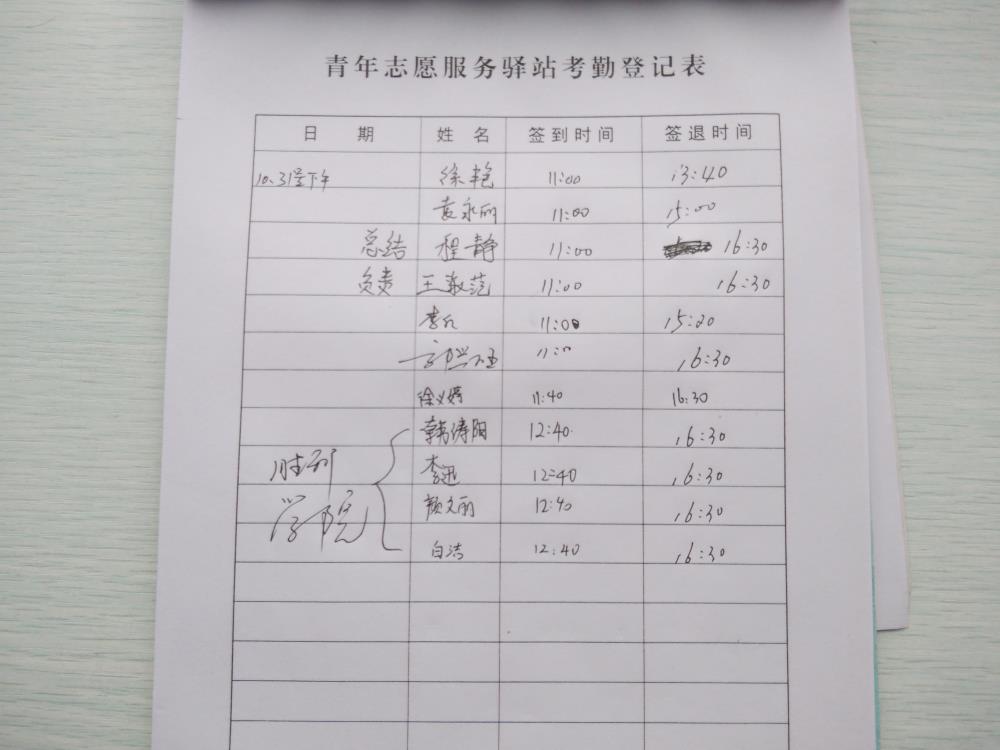 青年志愿服务驿站考勤登记表
日 期 姓 名 签到时间 签退时间
10.31号下午 徐艳 11:00 13:40
袁永丽 11:00 15:00
总结 程静 11:00 16:30
负责 王敬范 11:00 16:30
李 11:00 15:20
11:00 16:30
徐义婷 11:40 16:30
韩涛阳 12:40 16:30
胜利 李迅 12:40 16:30
学院 颜文丽 12:40 16:30
白洁 12:40 16:30